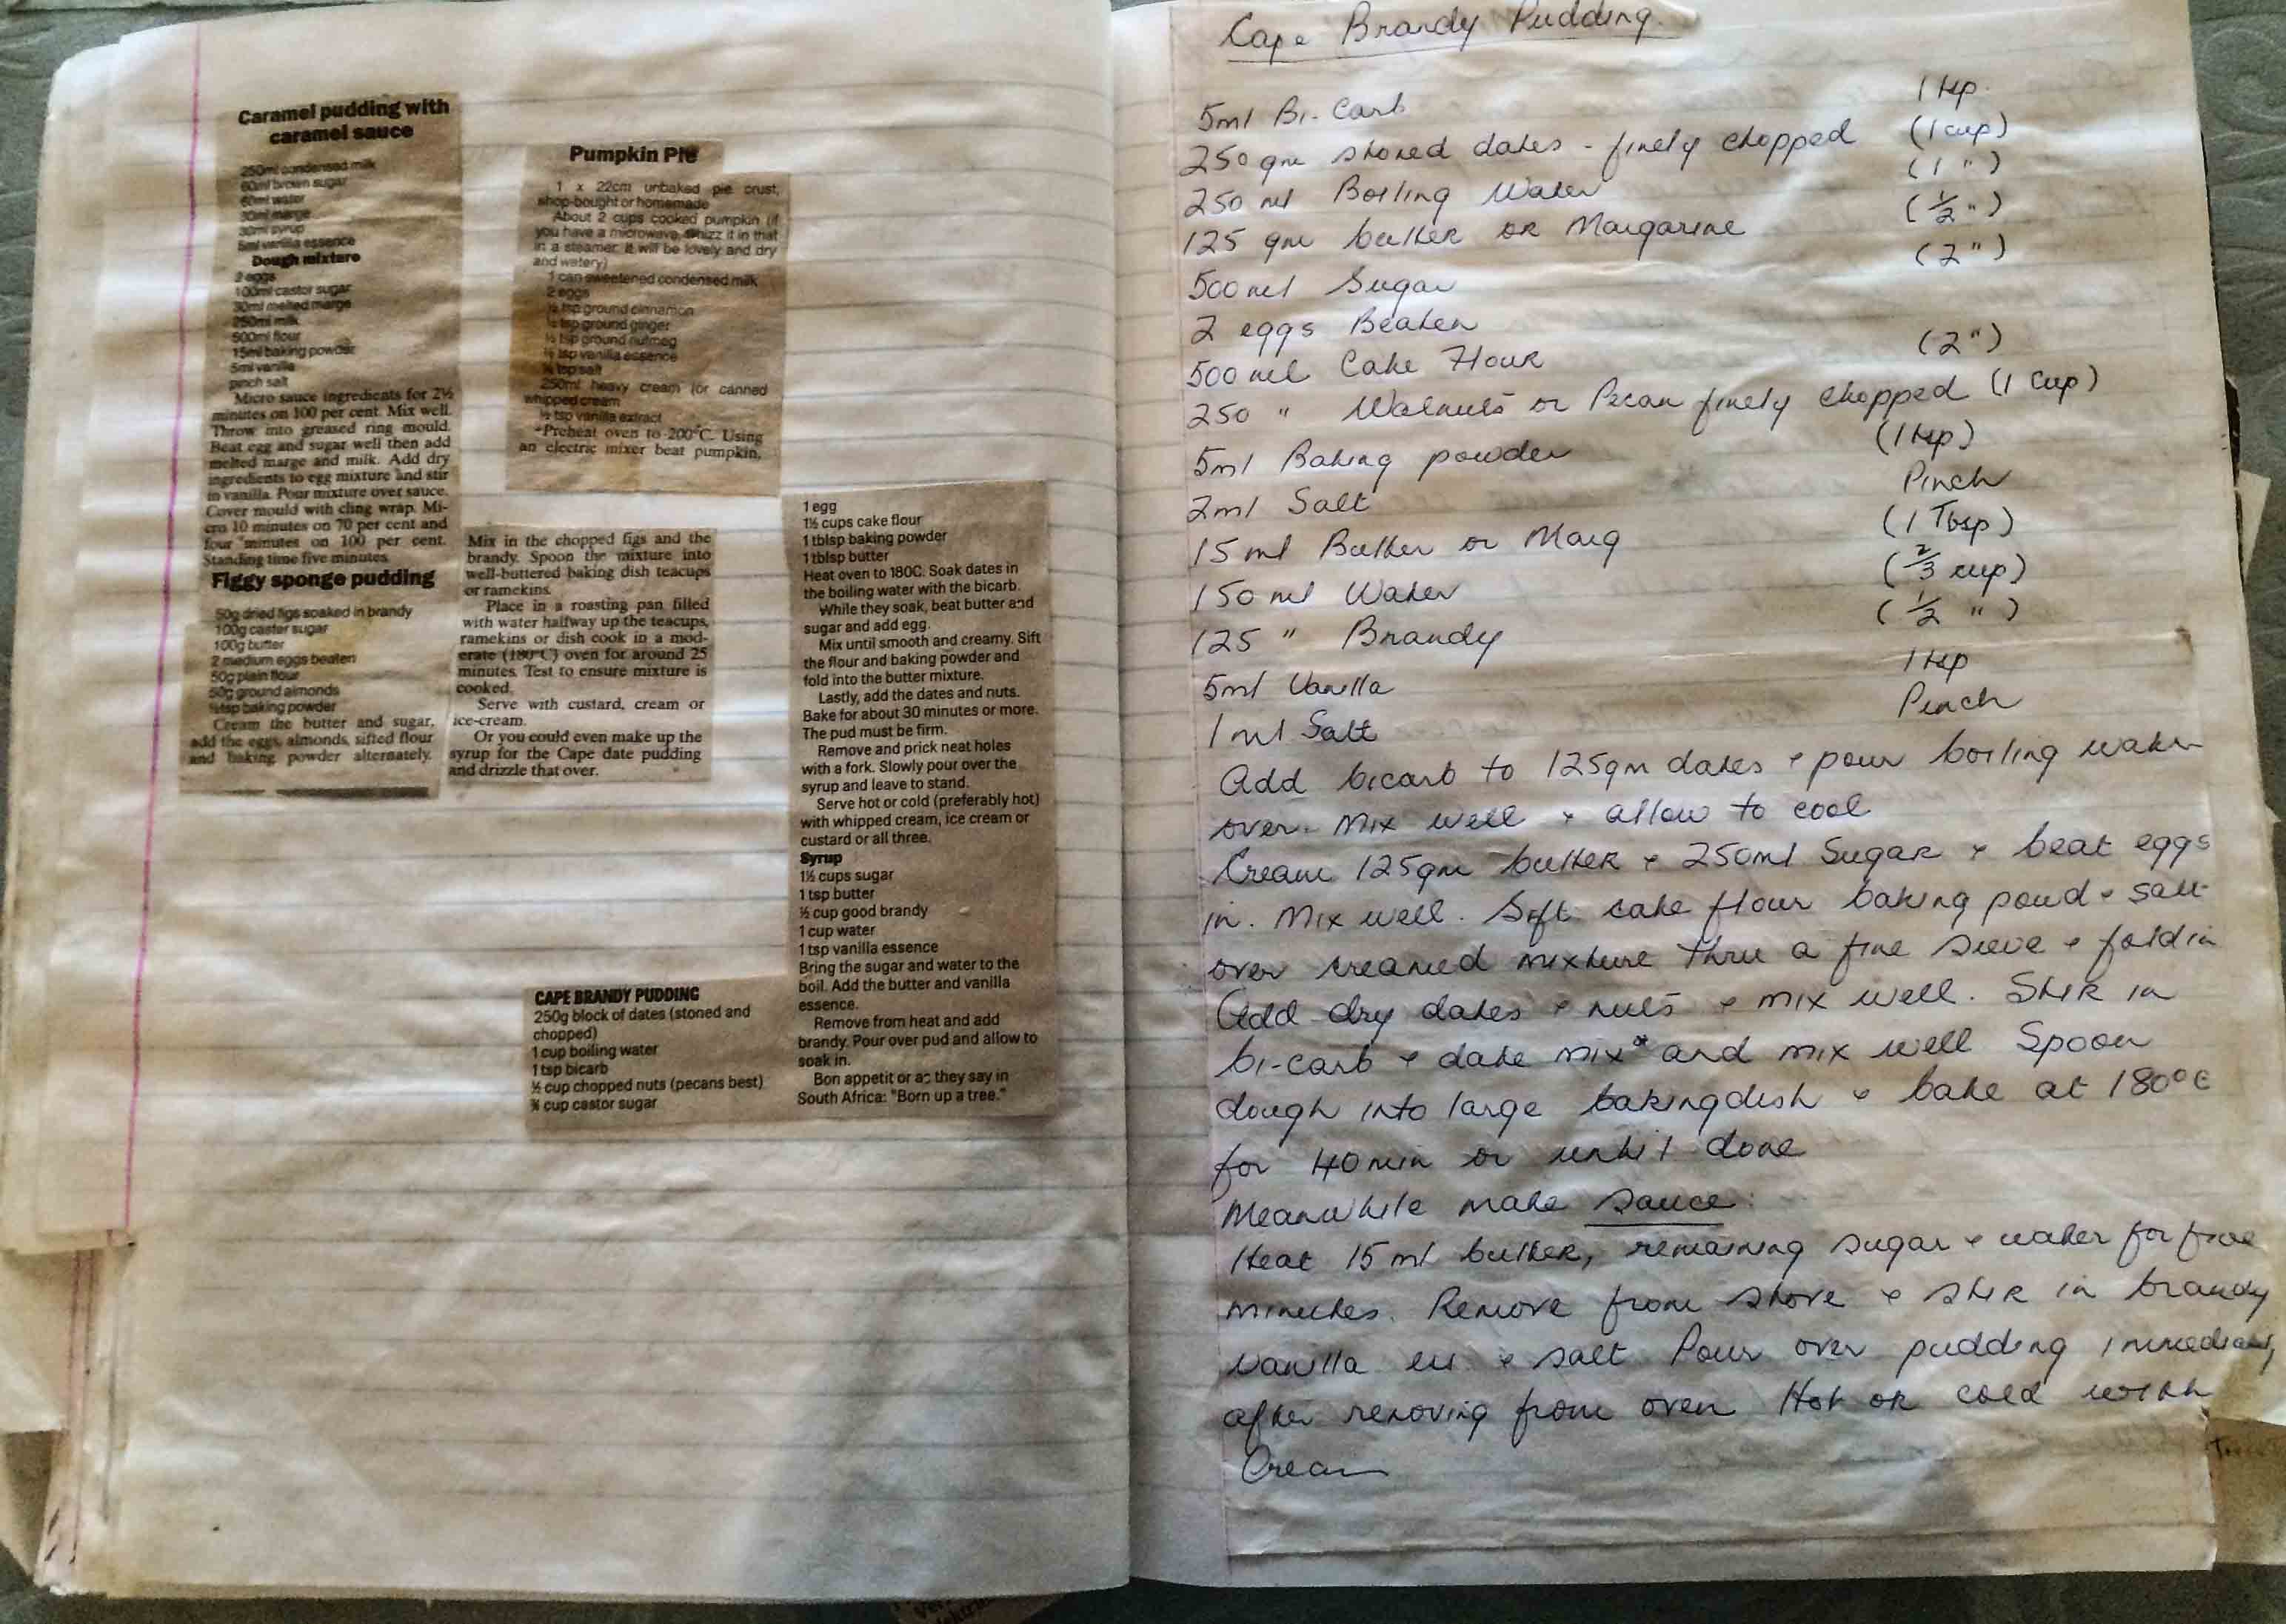 Caramel pudding with
caramel sauce
250ml condensed milk
60ml brown sugar
60ml water
30ml marge
30ml syrup
5ml vanilla essence
Dough mixture
2 eggs
100ml castor sugar
30ml melted marge
250ml milk
500ml flour
15ml baking powder
5ml vanilla
pinch salt
Micro sauce ingredients for 2½
minutes on 100 per cent. Mix well.
Throw into greased ring mould.
Beat egg and sugar well then add
melted marge and milk. Add dry
ingredients to egg mixture and stir
in vanilla. Pour mixture over sauce.
Cover mould with cling wrap. Mi-
cro 10 minutes on 70 per cent and
four minutes on 100 per cent.
Standing time five minutes.
Figgy sponge pudding
50g dried figs soaked in brandy
100g caster sugar
100g butter
2 medium eggs beaten
50g plain flour
50g ground almonds
tsp baking powder
Cream the butter and sugar,
add the eggs, almonds, sifted flour
and baking powder alternately.
Mix in the chopped figs and the
brandy. Spoon the mixture into
well-buttered baking dish teacups
or ramekins.
Place in a roasting pan filled
with water halfway up the teacups,
ramekins or dish cook in a mod-
erate (180°C) oven for around 25
minutes. Test to ensure mixture is
cooked.
Serve with custard, cream or
ice-cream.
Or you could even make up the
syrup for the Cape date pudding
and drizzle that over.
Pumpkin Pie
1 x 22cm unbaked pie crust,
shop-bought or homemade
About 2 cups cooked pumpkin (if
you have a microwave, whizz it in that
in a steamer. It will be lovely and dry
and watery)
1 can sweetened condensed milk
2 eggs
tsp ground cinnamon
½ tsp ground ginger
½ tsp ground nutmeg
½ tsp vanilla essence
tsp salt
250ml heavy cream (or canned
whipped cream
½ tsp vanilla extract
Preheat oven to 200°C. Using
an electric mixer beat pumpkin,
CAPE BRANDY PUDDING
250g block of dates (stoned and
chopped)
1 cup boiling water
1 tsp bicarb
½ cup chopped nuts (pecans best)
¾ cup castor sugar
1 egg
1½ cups cake flour
1 tblsp baking powder
1 tblsp butter
Heat oven to 180C. Soak dates in
the boiling water with the bicarb.
While they soak, beat butter and
sugar and add egg.
Mix until smooth and creamy. Sift
the flour and baking powder and
fold into the butter mixture.
Lastly, add the dates and nuts.
Bake for about 30 minutes or more.
The pud must be firm.
Remove and prick neat holes
with a fork. Slowly pour over the
syrup and leave to stand.
Serve hot or cold (preferably hot)
with whipped cream, ice cream or
custard or all three.
Syrup
1½ cups sugar
1 tsp butter
½ cup good brandy
1 cup water
1 tsp vanilla essence
Bring the sugar and water to the
boil. Add the butter and vanilla
essence.
Remove from heat and add
brandy. Pour over pud and allow to
soak in.
Bon appetit or as they say in
South Africa: "Born up a tree."
Cape Brandy Pudding.
5ml Bi-Carb 1 tsp.
250 gm stoned dates - finely chopped (1 cup)
250 ml Boiling Water (1 ")
125 gm butter or Margarine (½ ")
500 ml Sugar (2 ")
2 eggs Beaten
500 ml Cake Flour (2 ")
250 " Walnuts or Pecan finely chopped (1 Cup)
5ml Baking powder (1 tsp)
2ml Salt Pinch
15 ml Butter or Marg (1 Tbsp)
150 ml Water (⅔ cup)
125 " Brandy (½ ")
5ml Vanilla 1 tsp
1 ml Salt Pinch
Add bicarb to 125gm dates + pour boiling water
over. Mix well + allow to cool
Cream 125gm butter + 250ml Sugar + beat eggs
in. Mix well. Sift cake flour baking powd + salt
over creamed mixture thru a fine sieve + fold in
Add dry dates + nuts + mix well. Stir in
bi-carb + date mix* and mix well Spoon
dough into large bakingdish + bake at 180°C
for 40 min or until done
Meanwhile make sauce:
Heat 15 ml butter, remaining sugar + water for five
minutes. Remove from stove + stir in brandy
Vanilla ess + salt Pour over pudding immediately
after removing from oven Hot or cold with
Cream